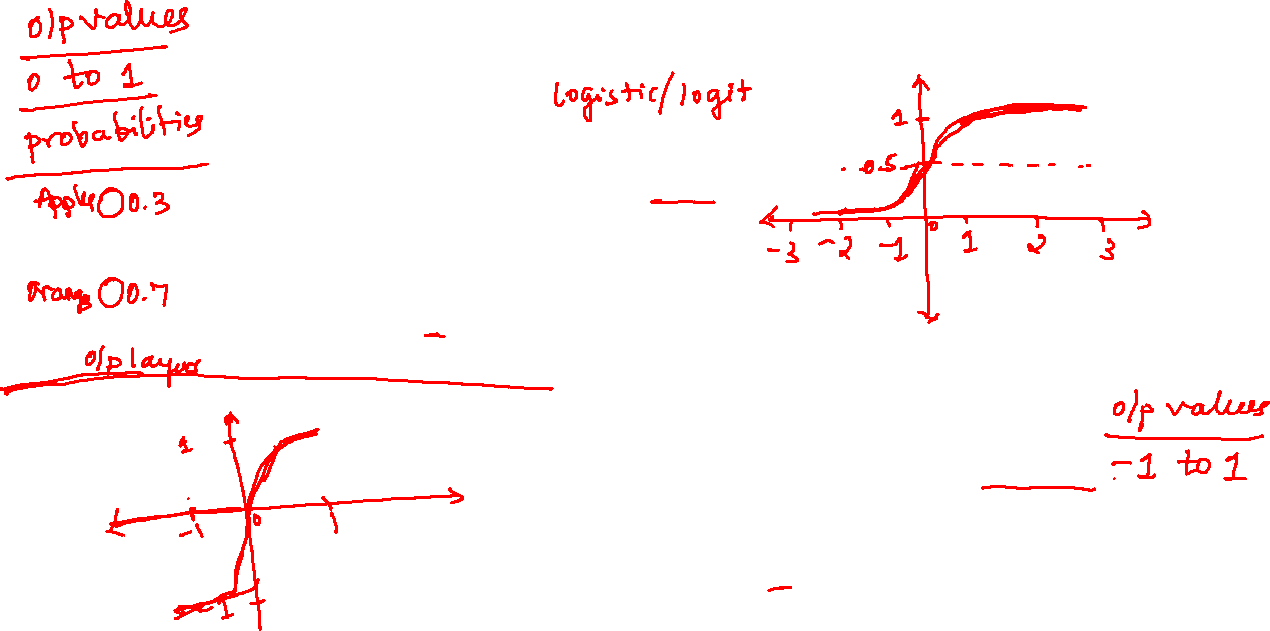 o/p values
0 to 1
probabilities
Apple 0.3
Orange 0.7
o/p layer
logistic/logit
1
0.5
-3 -2 -1 0 1 2 3
1
-1 0
-1
o/p values
-1 to 1